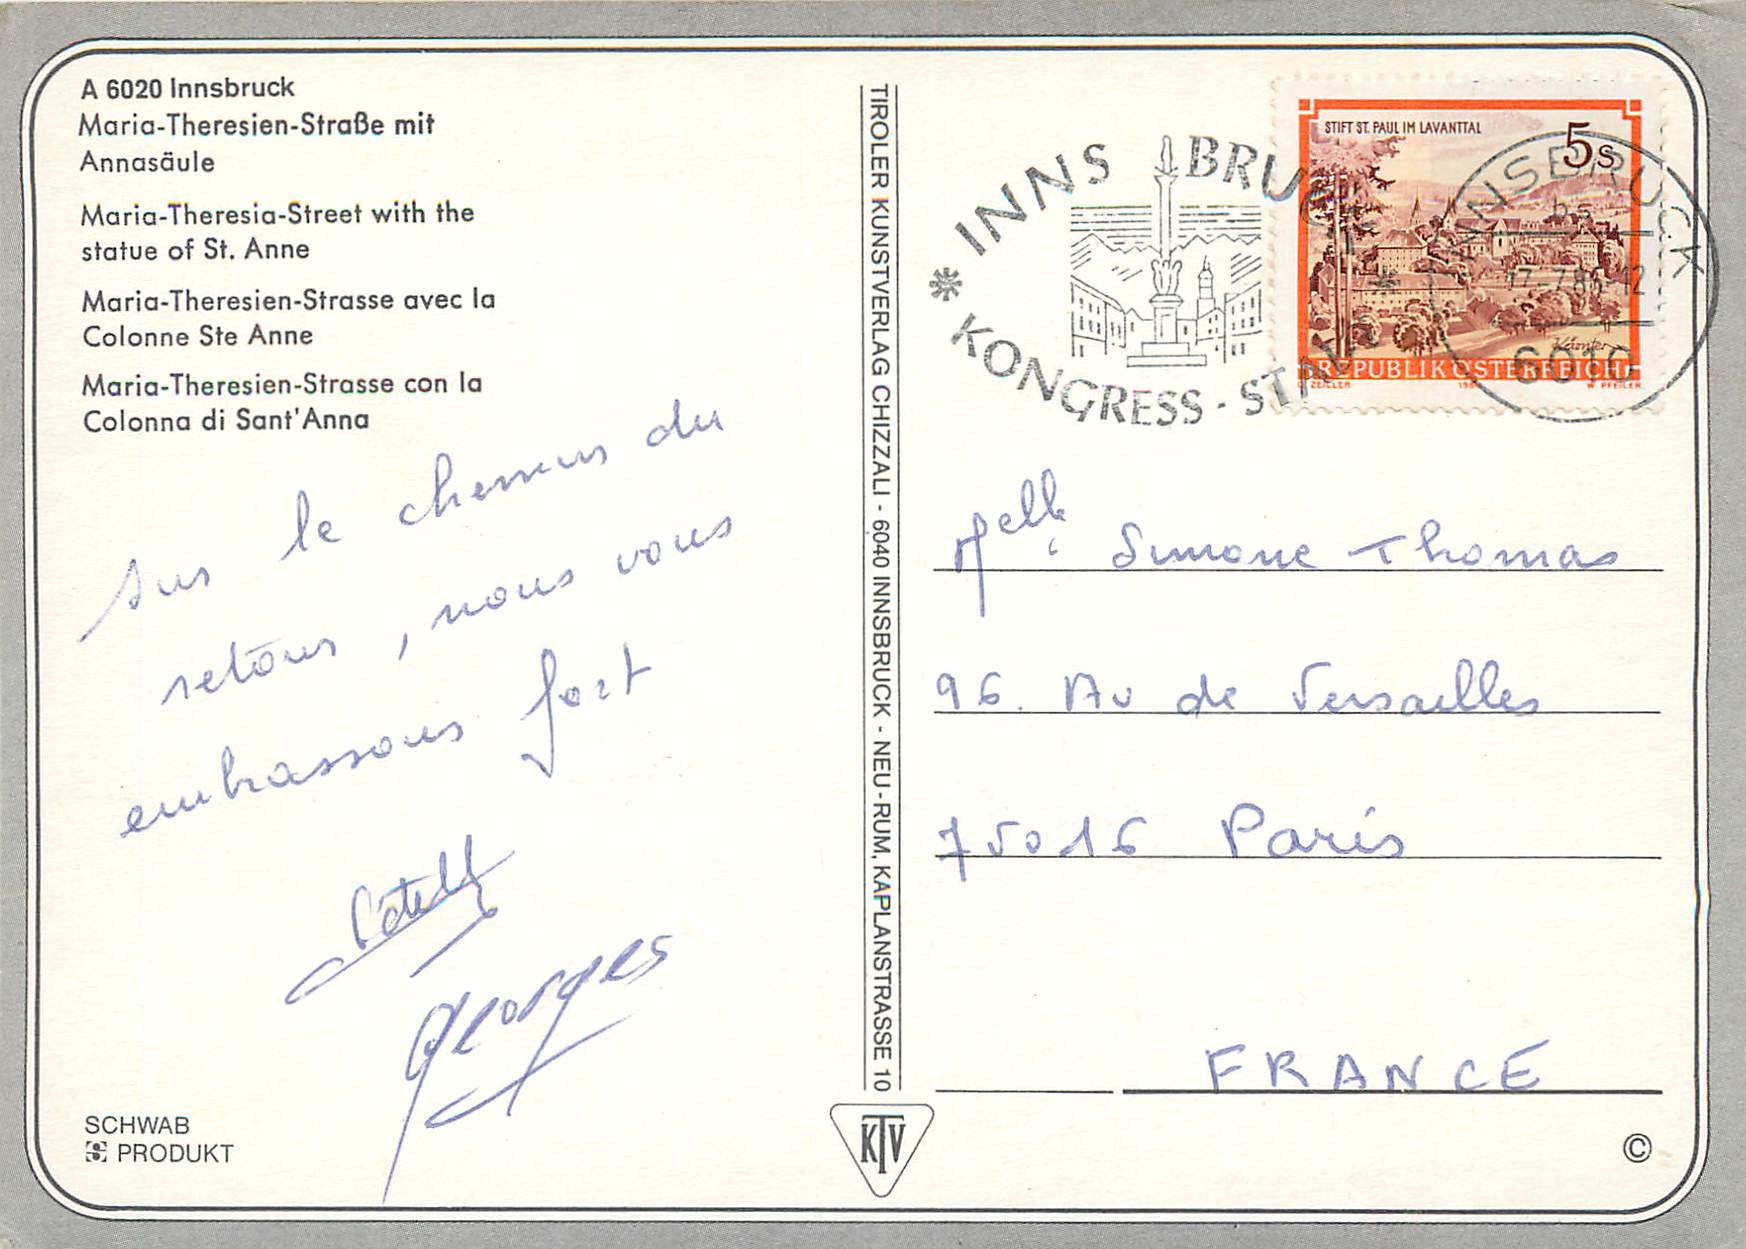 A 6020 Innsbruck
Maria-Theresien-Straße mit
Annasäule
Maria-Theresia-Street with the
statue of St. Anne
Maria-Theresien-Strasse avec la
Colonne Ste Anne
Maria-Theresien-Strasse con la
Colonna di Sant'Anna
sur le chemin du
retour, nous vous
embrassons fort
Georges
SCHWAB
PRODUKT
TIROLER KUNSTVERLAG CHIZZALI - 6040 INNSBRUCK - NEU-RUM, KAPLANSTRASSE 10
KTV
INNSBRUCK
* KONGRESS-STADT *
STIFT ST. PAUL IM LAVANTTAL
5s
REPUBLIK ÖSTERREICH
O. ZEILLER
W. PFEILER
INNSBRUCK
6010
Melle Simone Thomas
96. Av de Versailles
75016 Paris
FRANCE
©